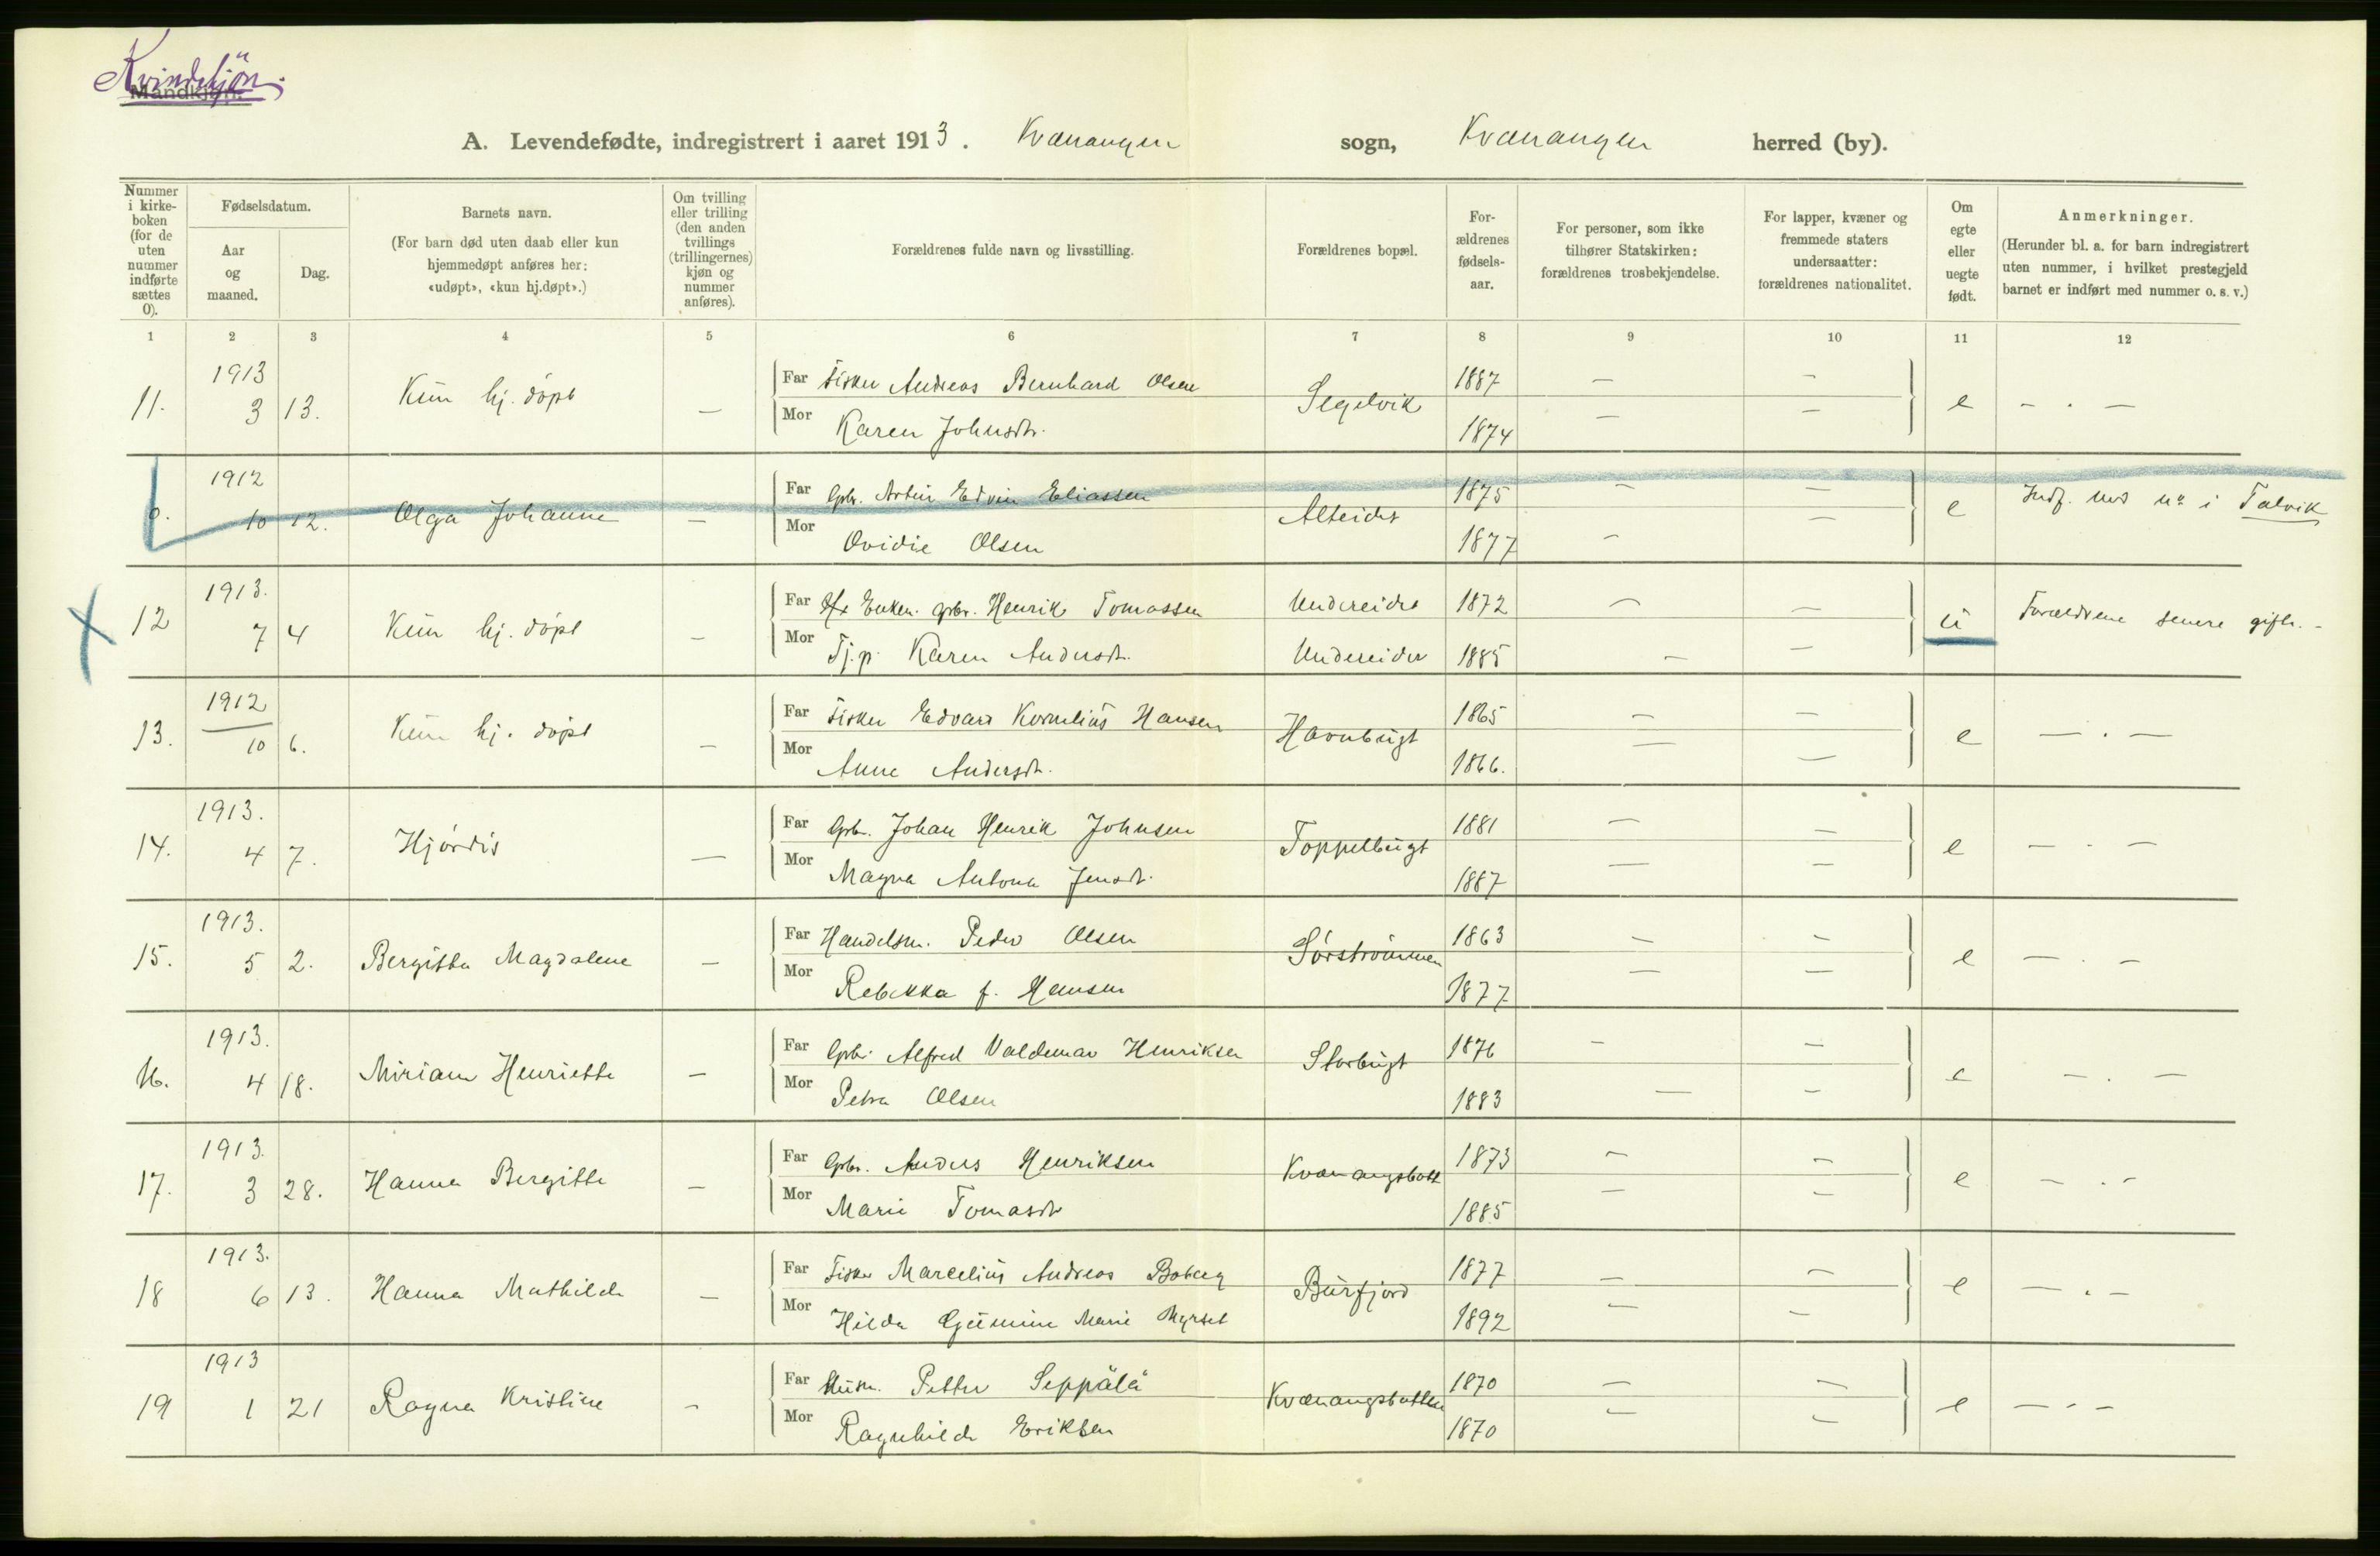 Kvindekjön.
Mandkjøn.
A. Levendefødte, indregistrert i aaret 1913. Kvænangen sogn, Kvænangen herred (by).
Nummer i kirkeboken (for de uten nummer indførte sættes 0).
Fødselsdatum.
Aar og maaned.
Dag.
Barnets navn.
(For barn død uten daab eller kun hjemmedøpt anføres her: «udøpt», «kun hj.døpt».)
Om tvilling eller trilling (den anden tvillings (trillingernes) kjøn og nummer anføres).
Forældrenes fulde navn og livsstilling.
Forældrenes bopæl.
For-ældrenes fødsels-aar.
For personer, som ikke tilhører Statskirken: forældrenes trosbekjendelse.
For lapper, kvæner og fremmede staters undersaatter: forældrenes nationalitet.
Om egte eller uegte født.
Anmerkninger.
(Herunder bl. a. for barn indregistrert uten nummer, i hvilket prestegjeld barnet er indført med nummer o. s. v.)
1 2 3 4 5 6 7 8 9 10 11 12
11. 1913 3 13. Kun hj. döpt — Far Fisker Andreas Bernhard Olsen Segelvik 1887 — — e — . —
Mor Karen Johnsdtr. 1874 — —
0. 1912 10 12. Olga Johanne — Far Gbr. Artur Edvin Eliassen Alteidet 1875 — — e Indf. med nr i Talvik
Mor Ovidie Olsen 1877 — —
12 1913. 7 4 Kun hj. döpt — Far Enkem. gbr. Henrik Tomassen Undereidet 1872 — — u Forældrene senere gift. -
Mor Tj.p. Karen Andersdt. Undereidet 1885 — —
13. 1912 10 6. Kun hj. döpt — Far Fisker Edvard Kornelius Hansen Havnbugt 1865 — — e — . —
Mor Anne Andersdt. 1866. — —
14. 1913. 4 7. Hjördis — Far Gbr. Johan Henrik Johnsen Toppelbugt 1881 — — e — . —
Mor Magna Antona Jensdt. 1887 — —
15. 1913. 5 2. Bergitta Magdalene — Far Handelsm. Peder Olsen Sörströmmen 1863 — — e — . —
Mor Rebekka f. Hansen 1877 — —
16. 1913. 4 18. Miriam Henriette — Far Gbr. Alfred Valdemar Henriksen Storbugt 1876 — — e — . —
Mor Petra Olsen 1883 — —
17. 1913. 3 28. Hanna Bergitte — Far Gbr. Anders Henriksen Kvænangsbott 1873 — — e — . —
Mor Marie Tomasdt 1885 — —
18 1913. 6 13. Hanna Mathilde — Far Fisker Marcelius Andreas Boberg Burfjord 1877 — — e — . —
Mor Hilda Marie Myrset 1892 — —
19 1913 1 21 Ragna Kristine — Far Husm. Petter Seppälä Kvænangsbotten 1870 — — e — . —
Mor Ragnhilda Eriksen 1870 — —